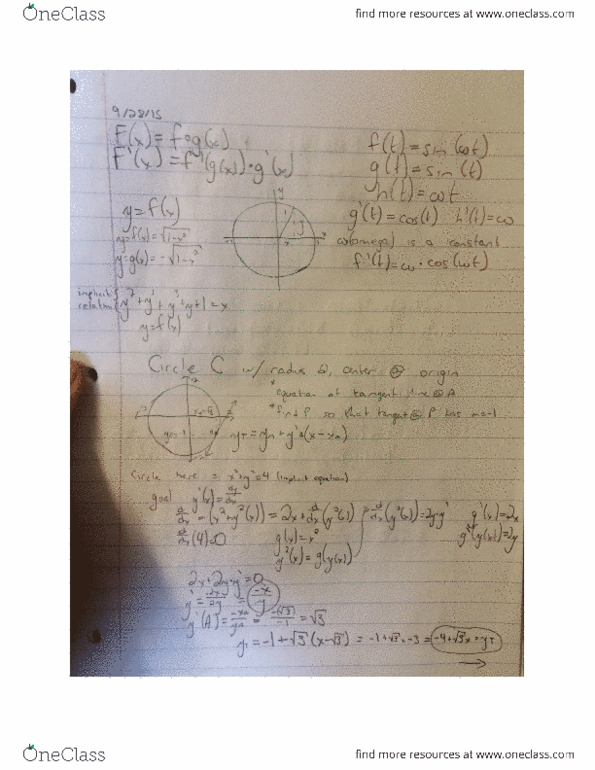 OneClass
find more resources at www.oneclass.com
9/28/15
F(x) = f∘g(x)
F'(x) = f'(g(x))·g'(x)
f(t) = sin(ωt)
g(t) = sin(t)
h(t) = ωt
g'(t) = cos(t) h'(t) = ω
ω(omega) is a constant
f'(t) = ω · cos(ωt)
y = f(x)
y = f(x) = √1-x²
y = g(x) = -√1-x²
implicit
relation
y = f(x)
Circle C w/ radius 2, center @ origin
equation of tangent @ A
find P so that tangent @ P has m=-1
Circle here = x²+y²=4 (implicit equation)
goal y'(x) = dy/dx
d/dx = (x²+y²(x)) = 2x + d/dx(y²(x)) = d/dx(y²(x)) = 2y·y' g'(x) = 2x
d/dx(4) = 0 g(x) = x² g'(y(x)) = 2y
y²(x) = g(y(x))
2x+2y·y' = 0
y' = -2x/2y = -x/y
y'(A) = -xA/yA = -(√3)/-1 = √3
= -1+√3(x-√3) = -1+√3x-3 = -4+√3x = yT
OneClass
find more resources at www.oneclass.com